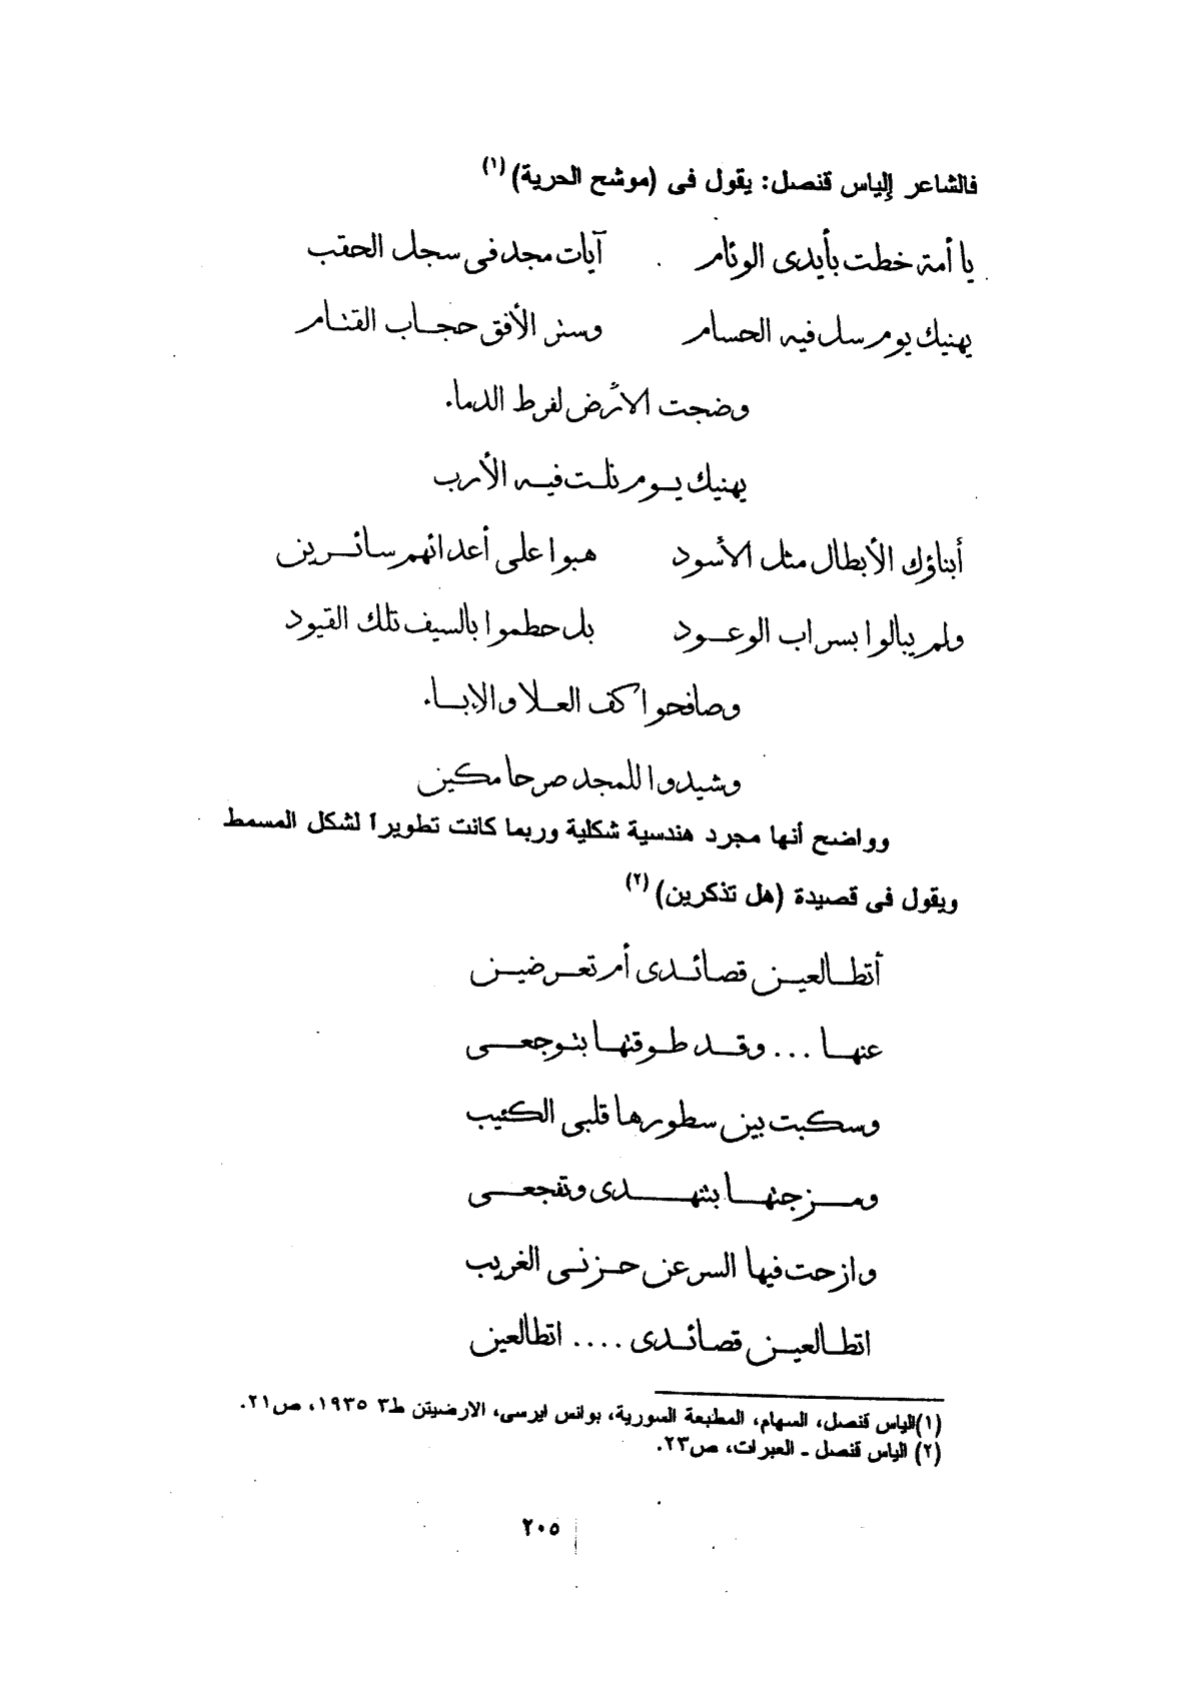 فالشاعر إلياس قنصل: يقول فى (موشح الحرية) (١)
يا أمة خطت بأيدى الوئام آيات مجد فى سجل الحقب
يهنيك يوم سل فيه الحسام وستر الأفق حجاب القتام
وضجت الأرض لفرط الدماء
يهنيك يوم نلت فيه الأرب
أبناؤك الأبطال مثل الأسود هبوا على أعدائهم سائرين
ولم يبالوا بسراب الوعود بل حطموا بالسيف تلك القيود
وصافحوا كف العلا والإباء
وشيدوا للمجد صرحا مكين
وواضح أنها مجرد هندسية شكلية وربما كانت تطويراً لشكل المسمط
ويقول فى قصيدة (هل تذكرين) (٢)
أتطالعين قصائدى أم تعرضين
عنها ... وقد طوقتها بتوجعى
وسكبت بين سطورها قلبى الكئيب
ومزجتها بتنهدى وتفجعى
وازحت فيها السر عن حزنى الغريب
اتطالعين قصائدى .... اتطالعين
(١) الياس قنصل، السهام، المطبعة السورية، بوانس ايرسى، الارضيتن ط٣ ١٩٣٥، ص٢١.
(٢) الياس قنصل ـ العبرات، ص٢٣.
٢٠٥